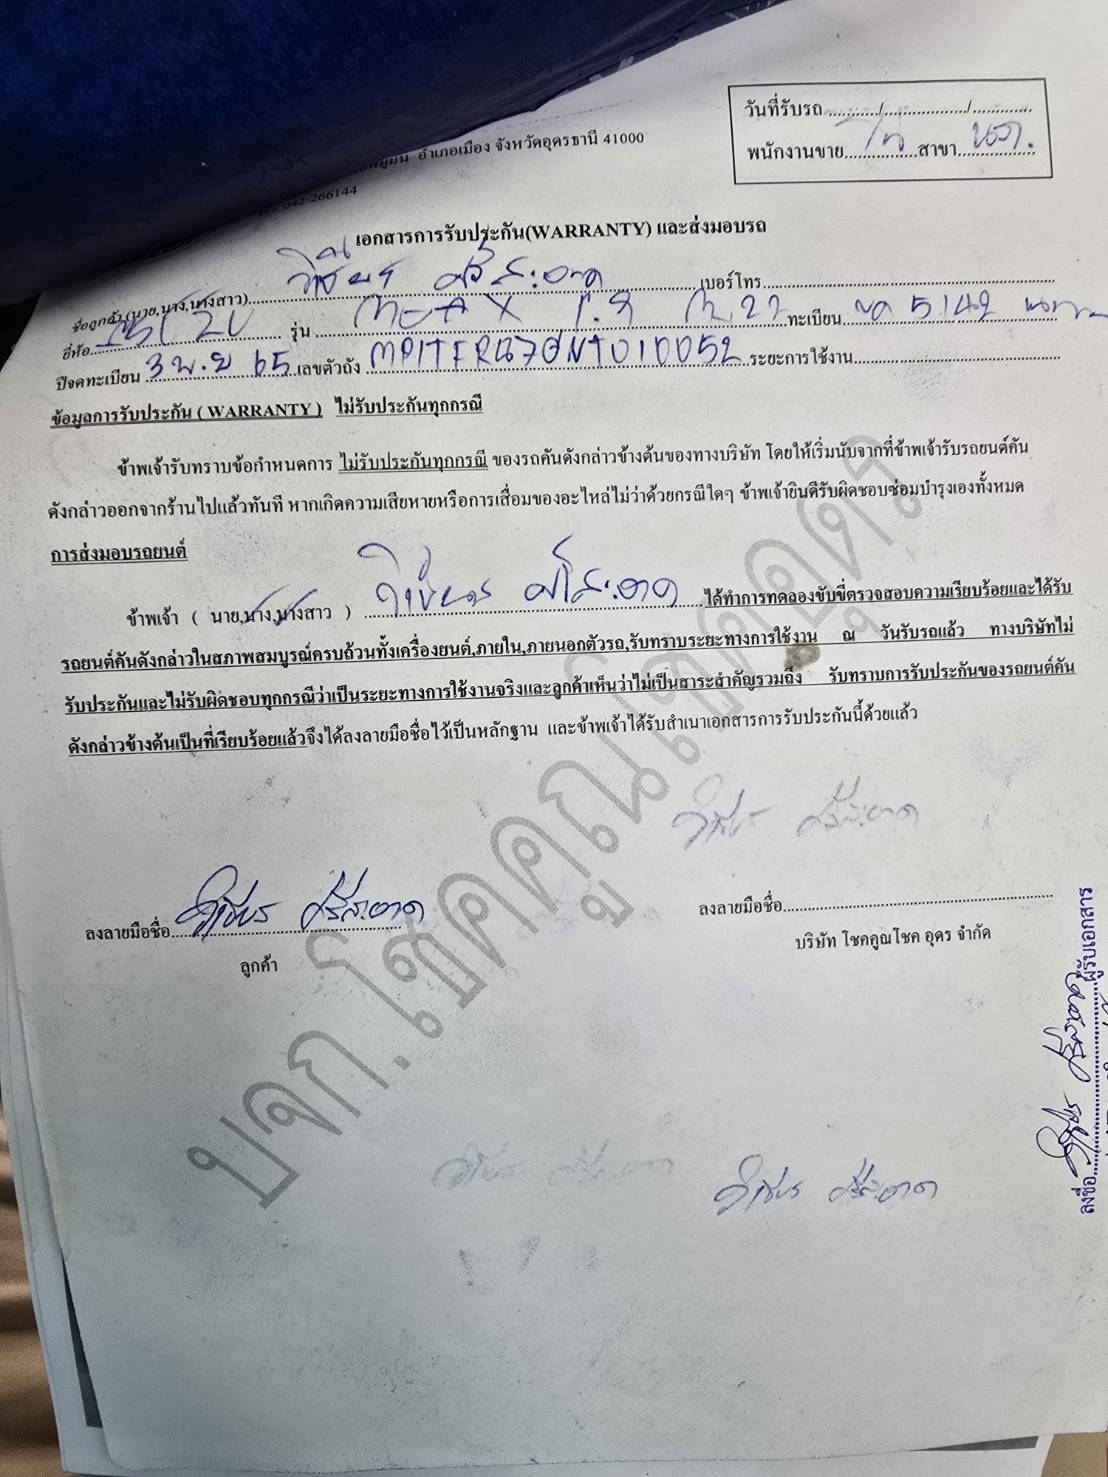 วันที่รับรถ............/................../.............
พนักงานขาย...............สาขา................
อำเภอเมือง จังหวัดอุดรธานี 41000
042-266144
เอกสารการรับประกัน(WARRANTY) และส่งมอบรถ
ชื่อลูกค้า (นาย,นาง,นางสาว)....วิเชียร ศรีสะอาด....เบอร์โทร....................
ยี่ห้อ....ISUZU....รุ่น....MAX 1.9 M.22....ทะเบียน....5142
ปีจดทะเบียน 3 พ.ย 65 เลขตัวถัง MP1TFR87JNT010052 ระยะการใช้งาน....................
ข้อมูลการรับประกัน ( WARRANTY ) ไม่รับประกันทุกกรณี
ข้าพเจ้ารับทราบข้อกำหนดการ ไม่รับประกันทุกกรณี ของรถคันดังกล่าวข้างต้นของทางบริษัท โดยให้เริ่มนับจากที่ข้าพเจ้ารับรถยนต์คัน
ดังกล่าวออกจากร้านไปแล้วทันที หากเกิดความเสียหายหรือการเสื่อมของอะไหล่ไม่ว่าด้วยกรณีใดๆ ข้าพเจ้ายินดีรับผิดชอบซ่อมบำรุงเองทั้งหมด
การส่งมอบรถยนต์
ข้าพเจ้า ( นาย,นาง,นางสาว ) ....วิเชียร ศรีสะอาด....ได้ทำการทดลองขับขี่ตรวจสอบความเรียบร้อยและได้รับ
รถยนต์คันดังกล่าวในสภาพสมบูรณ์ครบถ้วนทั้งเครื่องยนต์,ภายใน,ภายนอกตัวรถ,รับทราบระยะทางการใช้งาน ณ วันรับรถแล้ว ทางบริษัทไม่
รับประกันและไม่รับผิดชอบทุกกรณีว่าเป็นระยะทางการใช้งานจริงและลูกค้าเห็นว่าไม่เป็นสาระสำคัญรวมถึง รับทราบการรับประกันของรถยนต์คัน
ดังกล่าวข้างต้นเป็นที่เรียบร้อยแล้วจึงได้ลงลายมือชื่อไว้เป็นหลักฐาน และข้าพเจ้าได้รับสำเนาเอกสารการรับประกันนี้ด้วยแล้ว
วิเชียร ศรีสะอาด
ลงลายมือชื่อ....วิเชียร ศรีสะอาด....
ลูกค้า
ลงลายมือชื่อ........................................
บริษัท โชคคูณโชค อุดร จำกัด
บจก.โชคคูณโชคอุดร
วิเชียร ศรีสะอาด
วิเชียร ศรีสะอาด
ลงชื่อ....วิเชียร ศรีสะอาด....ผู้รับเอกสาร